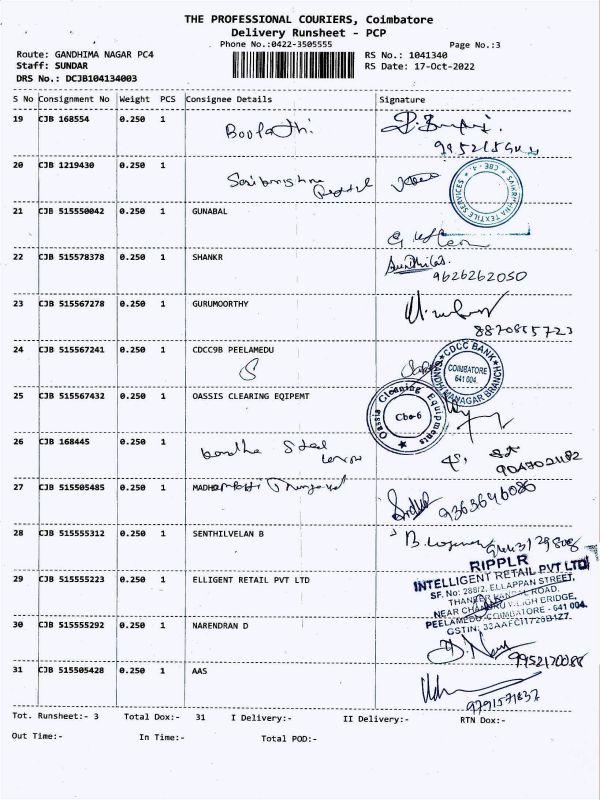 THE PROFESSIONAL COURIERS, Coimbatore
Delivery Runsheet - PCP
Phone No.:0422-3505555
Page No.:3
Route: GANDHIMA NAGAR PC4
RS No.: 1041340
Staff: SUNDAR
RS Date: 17-Oct-2022
DRS No.: DCJB104134003
S No Consignment No Weight PCS Consignee Details Signature
19 CJB 168554 0.250 1
20 CJB 1219430 0.250 1
SAIKRISHNA TEXTILE SERVICES ★ CBE-4 ★
21 CJB 515550042 0.250 1 GUNABAL
22 CJB 515578378 0.250 1 SHANKR
9626262050
23 CJB 515567278 0.250 1 GURUMOORTHY
24 CJB 515567241 0.250 1 CDCC9B PEELAMEDU
★CDCC BANK★
GANDHI MANAGAR BRANCH
COIMBATORE
641 004.
25 CJB 515567432 0.250 1 OASSIS CLEARING EQIPEMT
Oassis Cleaning Equipments
Cbe-6
26 CJB 168445 0.250 1
Steel
27 CJB 515505485 0.250 1
9363646086
28 CJB 515555312 0.250 1 SENTHILVELAN B
29 CJB 515555223 0.250 1 ELLIGENT RETAIL PVT LTD
RIPPLR
INTELLIGENT RETAIL PVT LTD
SF. No: 288/2, ELLAPPAN STREET,
ROAD,
BRIDGE,
PEELAMEDU, COIMBATORE - 641 004.
GSTIN:
30 CJB 515555292 0.250 1 NARENDRAN D
9952170088
31 CJB 515505428 0.250 1 AAS
9791571837
Tot. Runsheet:- 3 Total Dox:- 31 I Delivery:- II Delivery:- RTN Dox:-
Out Time:- In Time:- Total POD:-